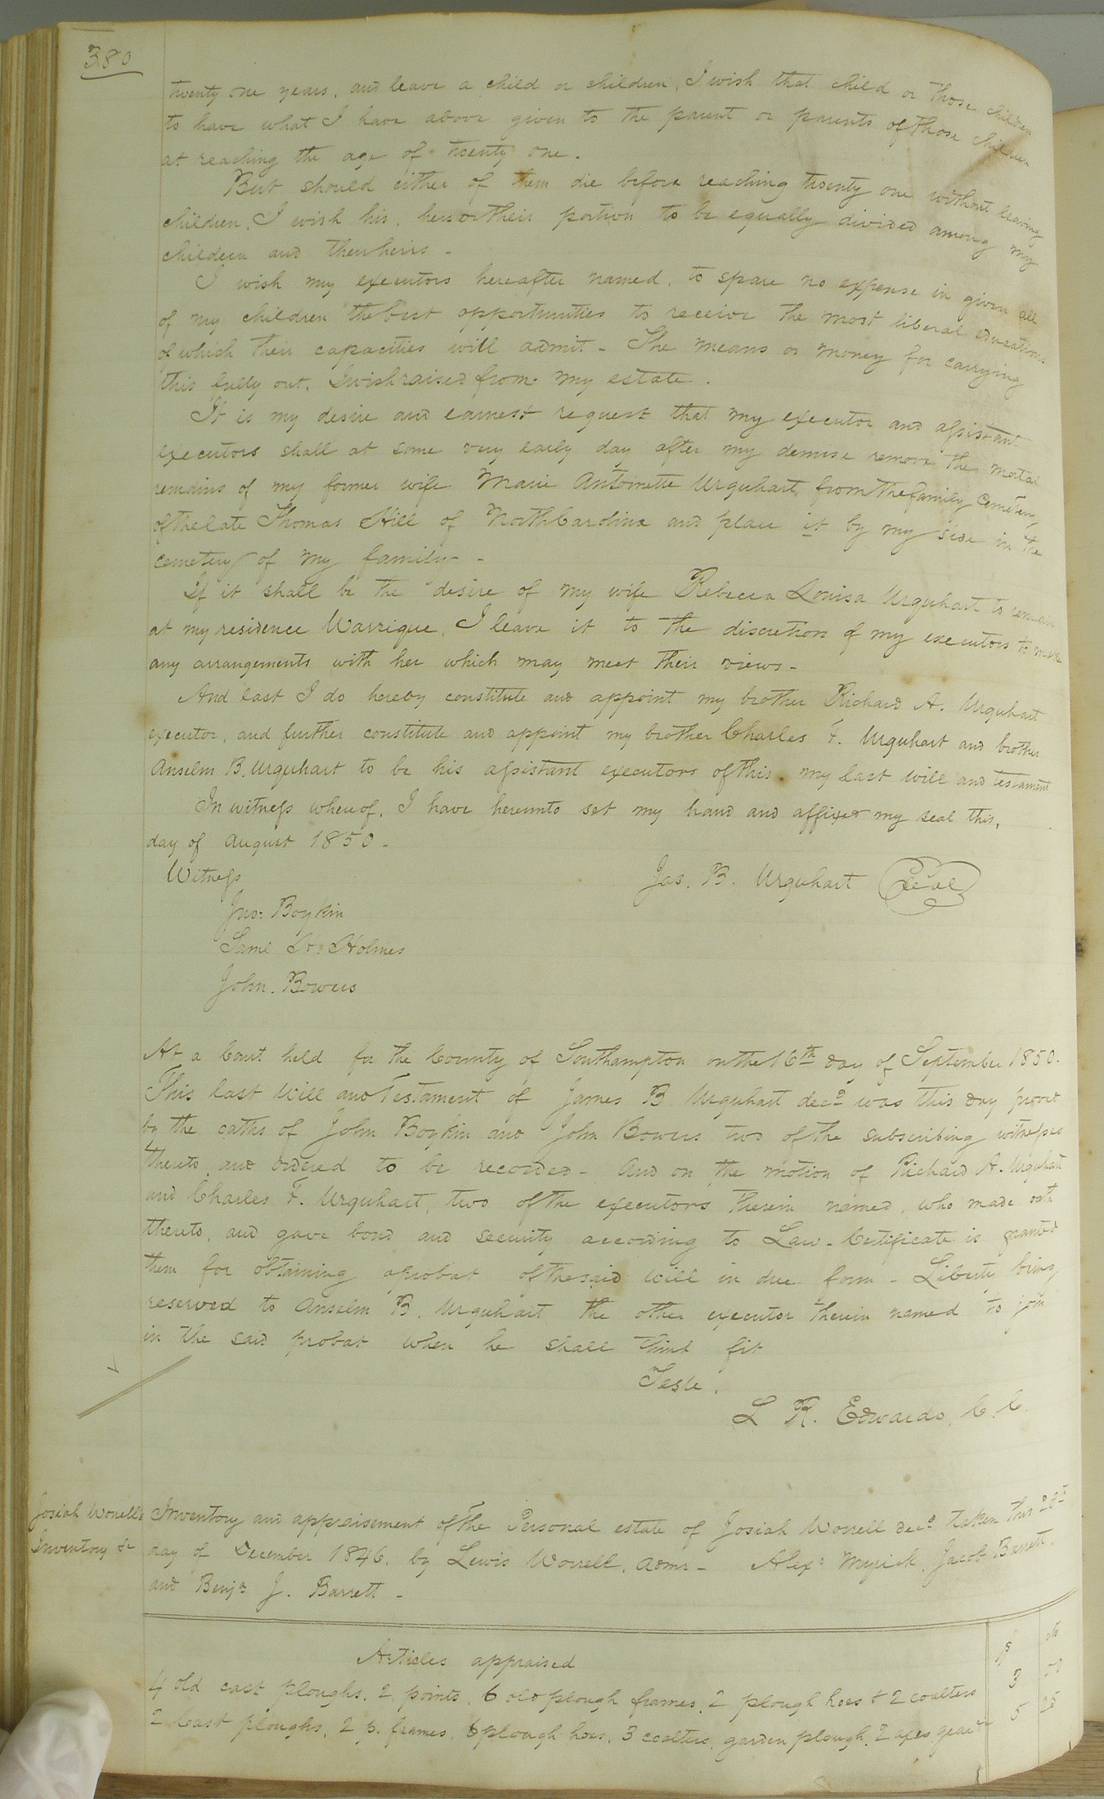 380
twenty one years, and leave a child or children, I wish that child or those children
to have what I have above given to the parent or parents of those children
at reaching the age of twenty one.
But should either of them die before reaching twenty one without leaving
children, I wish his, hers or their portion to be equally divided among my
children and their heirs -
I wish my executors hereafter named, to spare no expense in given all
of my children the best opportunities to receive the most liberal educations
of which their capacities will admit - The means or money for carrying
this fully out, I wish raised from my estate.
It is my desire and earnest request that my executor and assistant
executors shall at some very early day after my demise remove the mortal
remains of my former wife Marie Antoinette Urquhart, from the family cemetery
of the late Thomas Hill of North Carolina and place it by my side in the
cemetery of my family -
If it shall be the desire of my wife Rebecca Louisa Urquhart to remain
at my residence Warrique, I leave it to the discretion of my executors to make
any arrangements with her which may meet their views -
And last I do hereby constitute and appoint my brother Richard A. Urquhart
executor, and further constitute and appoint my brother Charles F. Urquhart and brother
Anselm B. Urquhart to be his assistant executors of this my last will and testament
In witness whereof, I have hereunto set my hand and affixed my seal this,
day of August 1850 -
Witness
Jas. B. Urquhart Seal
Jno: Boykin
Saml Holmes
John. Bowers
At a Court held for the County of Southampton on the 16th day of September 1850.
This last Will and Testament of James B Urquhart decd was this day proved
by the oaths of John Boykin and John Bowers two of the subscribing witnesses
thereto, and ordered to be recorded - And on the motion of Richard A. Urquhart
and Charles F. Urquhart, two of the executors therein named, who made oath
thereto, and gave bond and security according to Law - Certificate is granted
them for obtaining a probat of the said will in due form - Liberty being
reserved to Anselm B. Urquhart the other executor therein named to join
in the said probat when he shall think fit
Teste.
L R. Edwards, C. C.
Josiah Worrell's
Inventory &c
Inventory and appraisement of the Personal estate of Josiah Worrell decd taken this
day of December 1846. by Lewis Worrell, admr - Alexr Myrick, Jacob Barrett.
and Benja J. Barrett -
Articles appraised $ cts
4 old cast ploughs, 2 points, 6 old plough frames, 2 plough hoes & 2 coalters 3 50
2 cast ploughs, 2 p. frames, 6 plough hoes, 3 coalters, garden plough, 2 axes 5 25